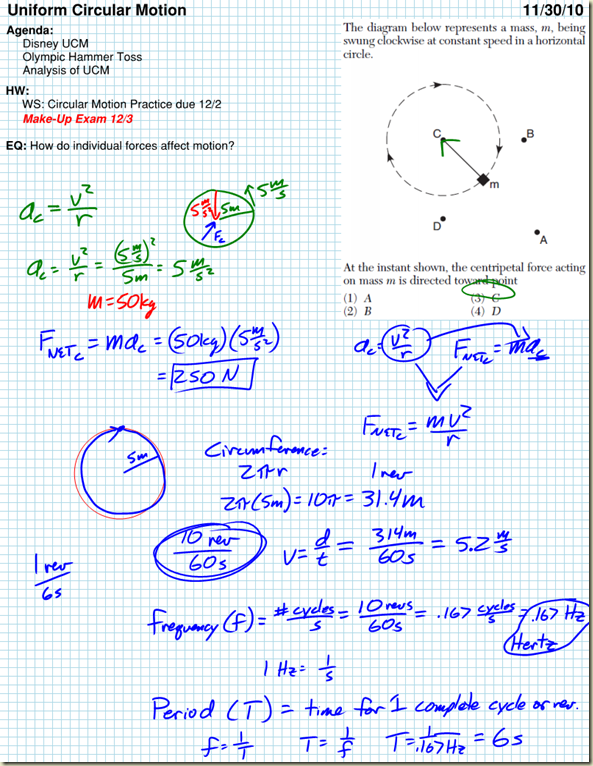 Uniform Circular Motion 11/30/10
Agenda:
Disney UCM
Olympic Hammer Toss
Analysis of UCM
HW:
WS: Circular Motion Practice due 12/2
Make-Up Exam 12/3
EQ: How do individual forces affect motion?
The diagram below represents a mass, m, being
swung clockwise at constant speed in a horizontal
circle.
C
B
m
D
A
At the instant shown, the centripetal force acting
on mass m is directed toward point
(1) A (3) C
(2) B (4) D
a_c = v²/r
5 m/s² 5m 5 m/s
F_c
a_c = v²/r = (5 m/s)²/5m = 5 m/s²
m = 50kg
F_NETc = ma_c = (50kg)(5 m/s²)
= 250 N
a_c = v²/r F_NETc = ma_c
F_NETc = mv²/r
5m
Circumference:
2πr 1 rev
2π(5m) = 10π = 31.4m
10 rev/60s v = d/t = 314m/60s = 5.2 m/s
1 rev/6s
frequency (f) = # cycles/s = 10 revs/60s = .167 cycles/s = .167 Hz
Hertz
1 Hz = 1/s
Period (T) = time for 1 complete cycle or rev.
f = 1/T T = 1/f T = 1/.167Hz = 6s